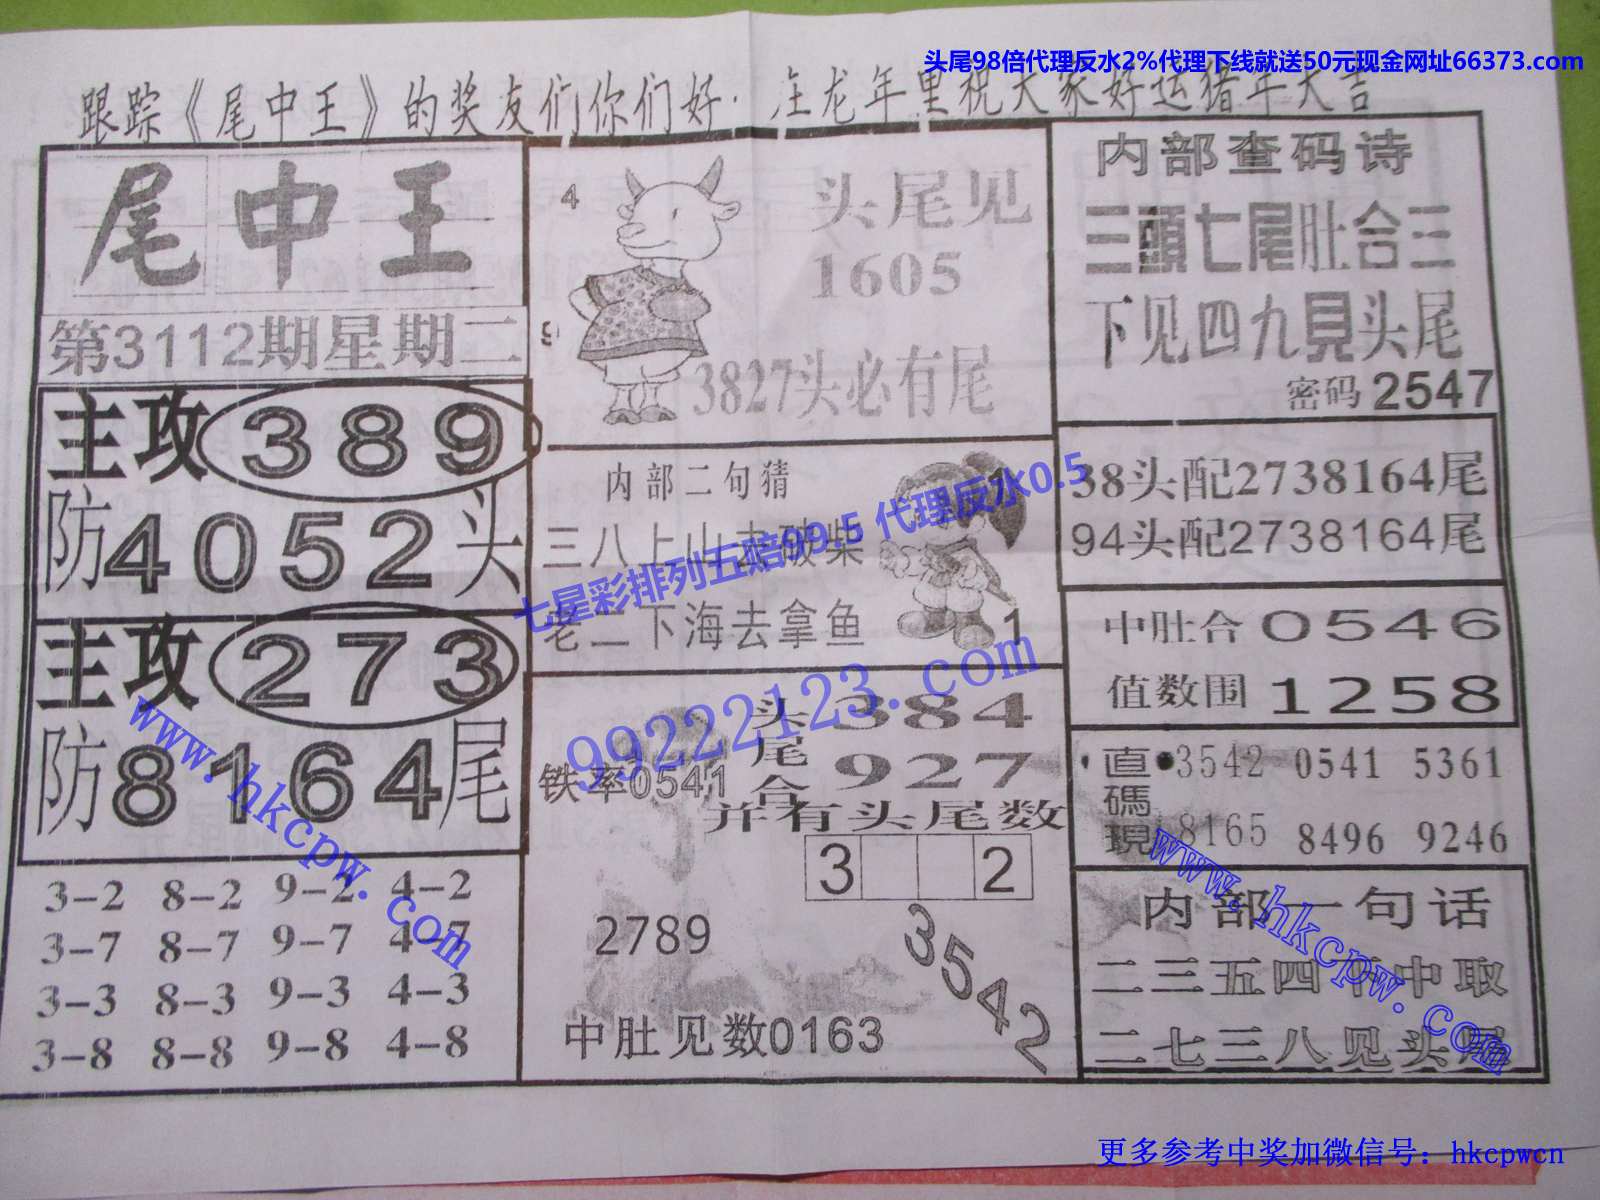 头尾98倍代理反水2%代理下线就送50元现金网址66373.com
跟踪《尾中王》的奖友们你们好·在龙年里祝大家好运猪年大吉
尾中王
第3112期星期二
主攻389
防4052头
主攻273
防8164尾
3-2 8-2 9-2 4-2
3-7 8-7 9-7 4-7
3-3 8-3 9-3 4-3
3-8 8-8 9-8 4-8
4
9
头尾见
1605
3827头必有尾
内部二句猜
三八上山去破柴
老二下海去拿鱼
4
1
七星彩排列五赔99.5 代理反水0.5
99222123.com
头尾合
384
927
铁率0541
并有头尾数
3 2
2789
3542
中肚见数0163
内部查码诗
三頭七尾肚合三
下见四九見头尾
密码2547
38头配2738164尾
94头配2738164尾
中肚合0546
值数围1258
直碼現
3542 0541 5361
8165 8496 9246
内部一句话
二三五四中取
二七三八见头尾
www.hkcpw.com
www.hkcpw.com
更多参考中奖加微信号：hkcpwcn